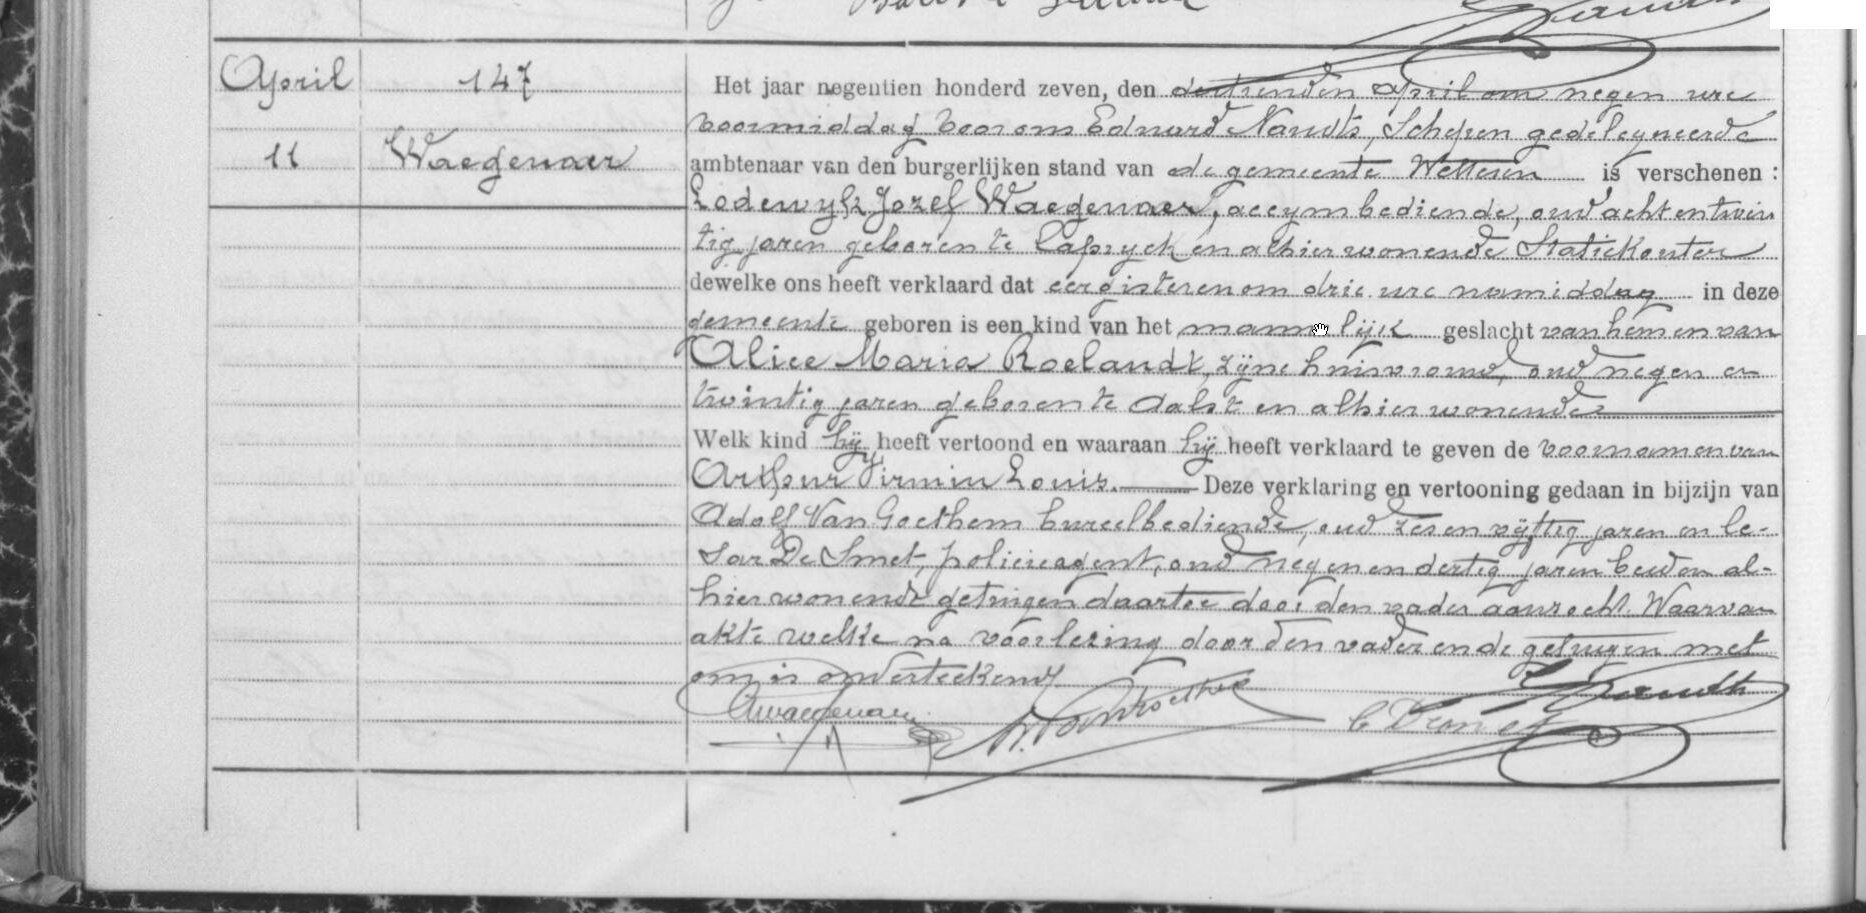 April
147
11
Waegenaer
Het jaar negentien honderd zeven, den dertienden april om negen ure
voormiddag voor ons Eduard Naudts, Schepen gedelegueerde
ambtenaar van den burgerlijken stand van de gemeente Wetteren is verschenen :
Lodewyk Jozef Waegenaer, accynsbediende, oud acht en twin
tig jaren geboren te Capryck en alhier wonende Statiekouter
dewelke ons heeft verklaard dat eergisteren om drie ure namiddag in deze
gemeente geboren is een kind van het mannelijk geslacht van hem en van
Alice Maria Roelandt, zijne huisvrouw, oud negen en
twintig jaren geboren te Aalst en alhier wonende
Welk kind hij heeft vertoond en waaraan hij heeft verklaard te geven de voornamen van
Arthur Firmin Louis. Deze verklaring en vertooning gedaan in bijzijn van
Adolf Van Goethem bureelbediende, oud zes en vyftig jaren en Ce-
sar De Smet, policieagent, oud negen en dertig jaren beiden al-
hier wonende getuigen daartoe door den vader aanzocht. Waarvan
akte welke na voorlezing door den vader en de getuigen met
ons is onderteekend
LWaegenaer
A. Van Goethem
C Desmet
E Naudts